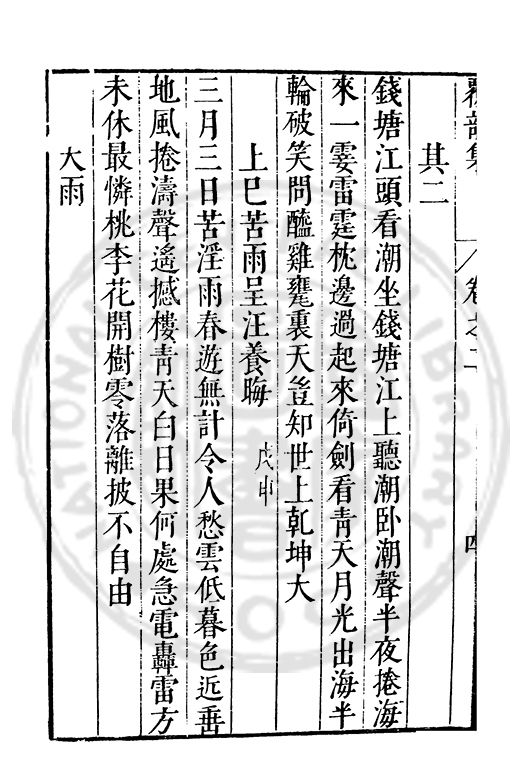 其二
錢塘江頭看潮坐錢塘江上聽潮卧潮聲半夜捲海
來一霎雷霆枕邊過起來倚劍看青天月光出海半
輪破笑問醯雞甕裏天豈知世上乾坤大
上巳苦雨呈汪養晦 戊申
三月三日苦淫雨春遊無計令人愁雲低暮色近垂
地風捲濤聲遙撼樓青天白日果何處急電轟雷方
未休最憐桃李花開樹零落離披不自由
大雨